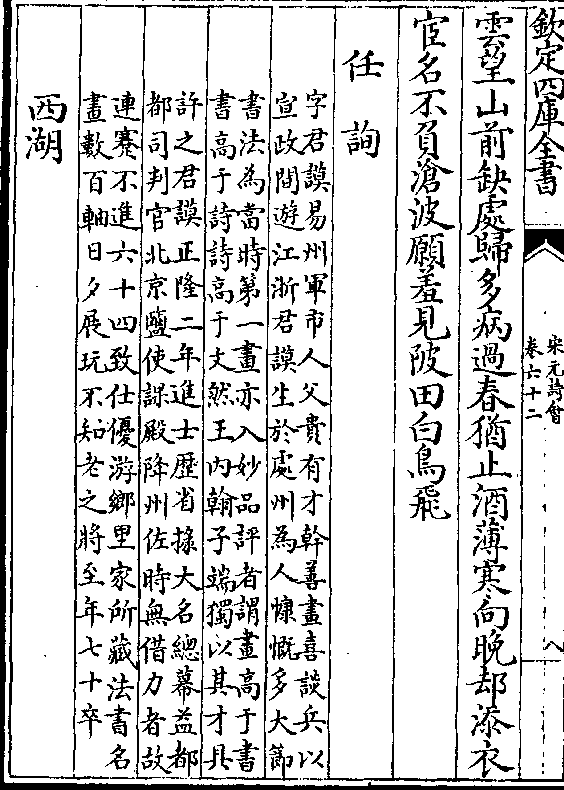 欽定四庫全書
宋元詩會
卷六十二
八
雲望山前缺處歸多病過春猶止酒薄寒向晚却添衣
宦名不負滄波願羞見陂田白鳥飛
任詢
字君謨易州軍市人父貴有才幹善畫喜談兵以
宣政間遊江浙君謨生於處州為人慷慨多大節
書法為當時第一畫亦入妙品評者謂畫高于書
書高于詩詩高于文然王内翰子端獨以其才具
許之君謨正隆二年進士歴省掾大名總幕益都
都司判官北京鹽使課殿降州佐時無借力者故
連蹇不進六十四致仕優游鄉里家所藏法書名
畫數百軸日夕展玩不知老之將至年七十卒
西湖